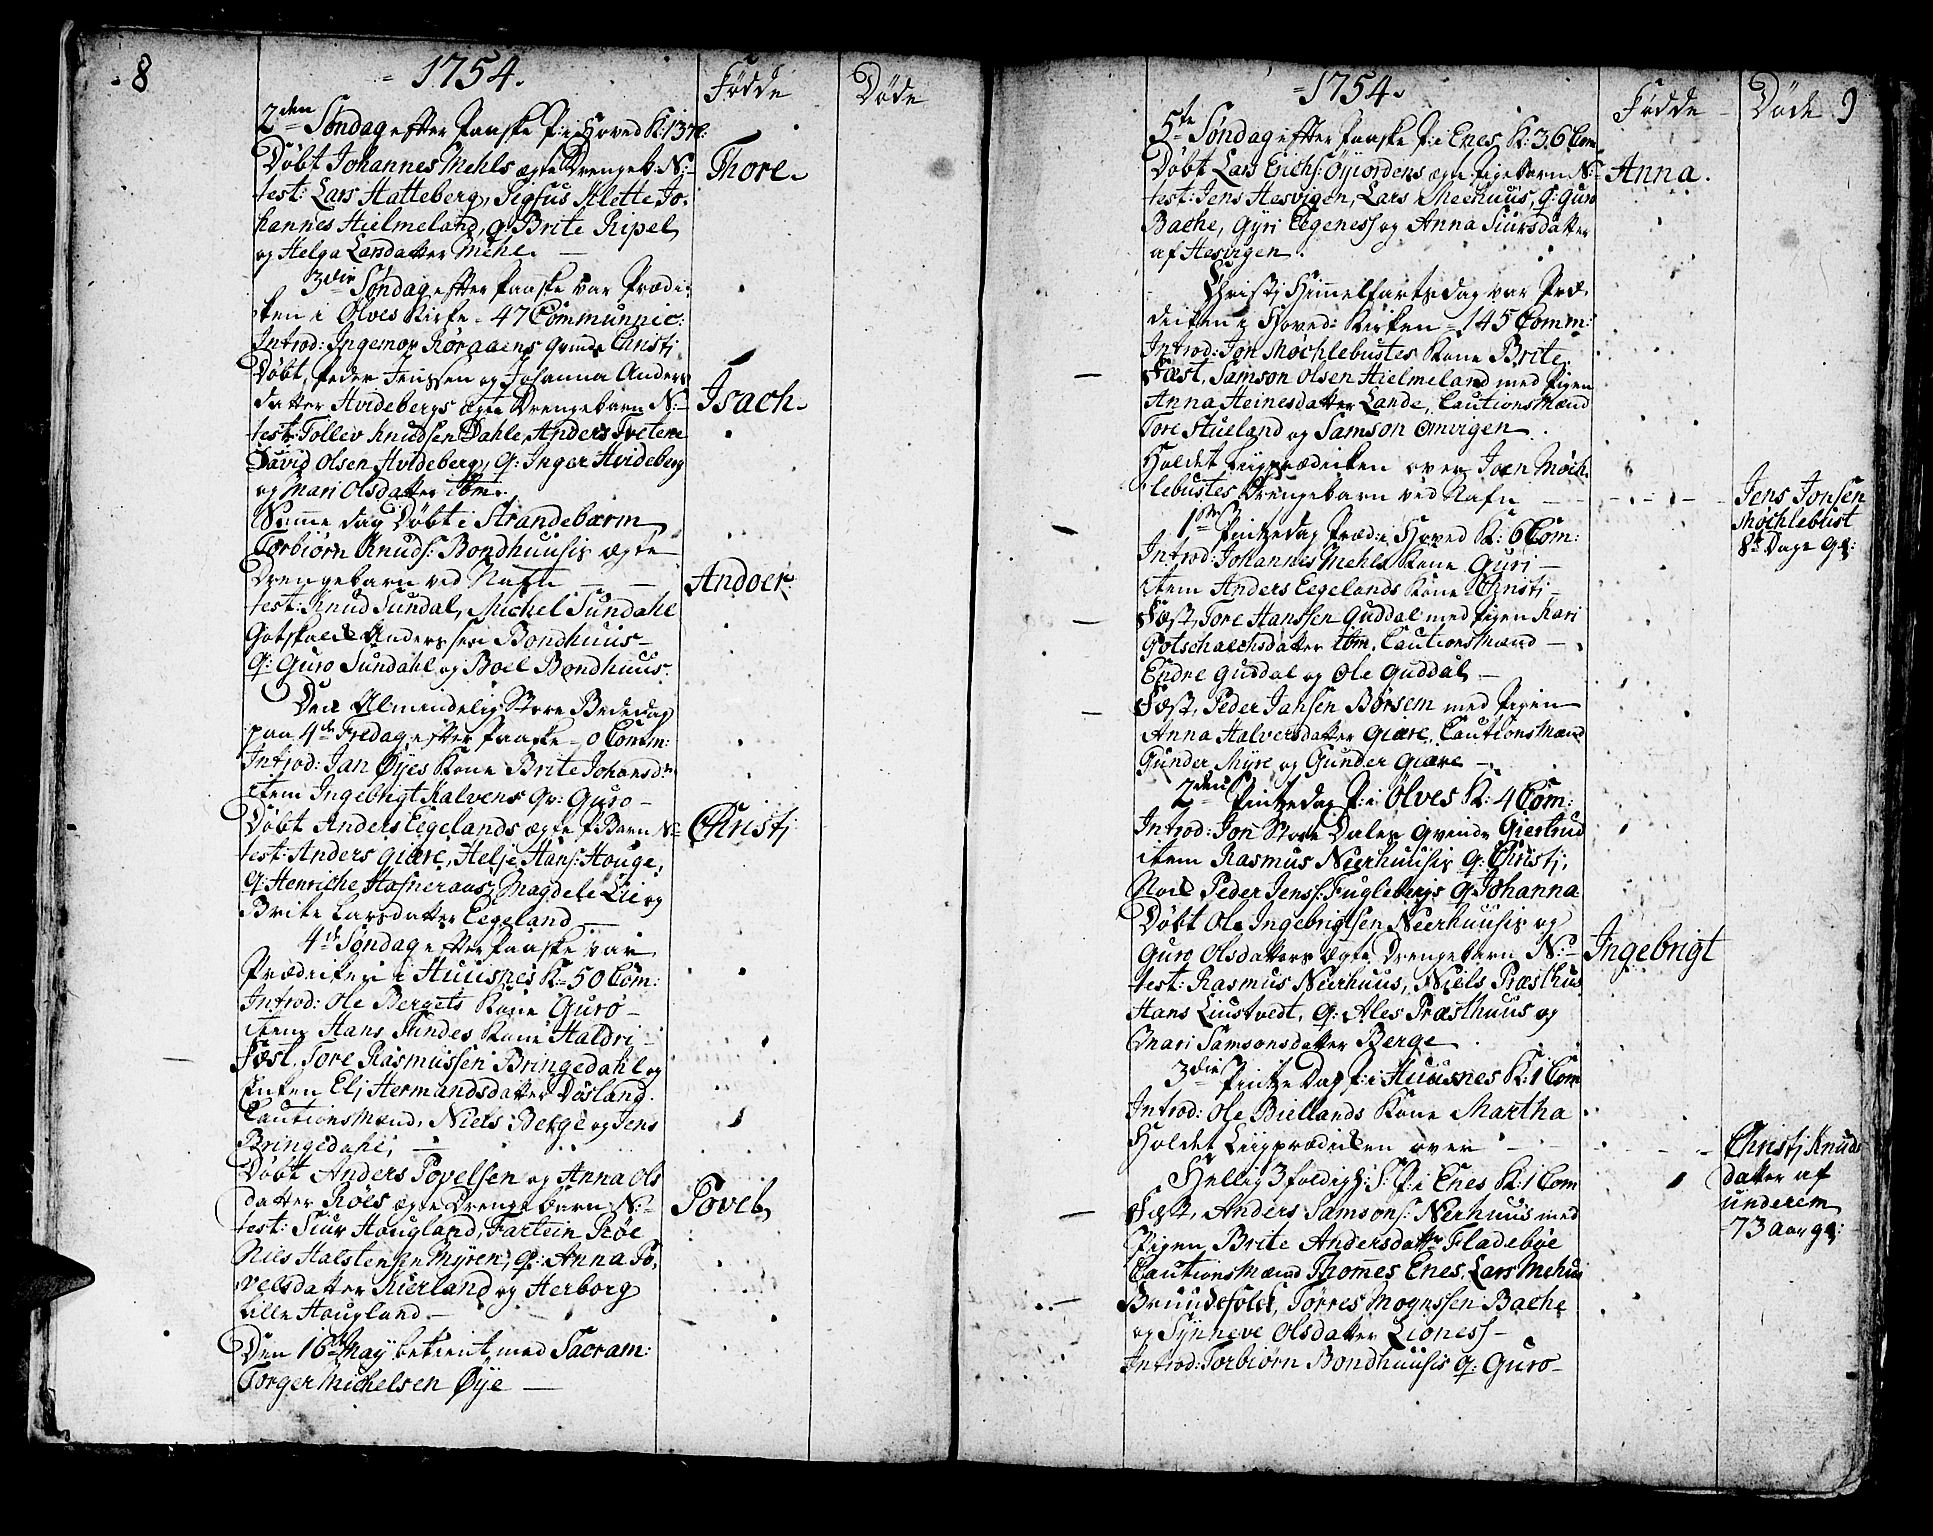 8
1754.
Fødde
Døde
2den Søndag efter Paaske P: i Hoved K: 137 C:
Døbt Johannes Mehls ægte Drengeb. N:
Thore.
test: Lars Hatteberg, Sigfus Klette Jo-
hannes Hielmeland, Q: Brite Ripel
og Helga Larsdatter Mehl.
3die Søndag efter Paaske var Prædi-
ken i Ølves Kirke. 47 Communnic:
Introd: Ingemor Røraaens Qvinde Christj
Døbt, Peder Jenssen og Johanna Anders
datter Hvidebergs ægte Drengebarn N:
Isach.
test: Tollev Knudsen Dahle, Anders Tvetene
David Olsen Hvideberg, Q: Inger Hvideberg
og Mari Olsdatter ibm.
Samme dag Døbt i Strandebarm
Torbiørn Knuds: Bondhuusis ægte
Drengebarn ved Nafn
Andoer
test: Knud Sundal, Michel Sundahl
Gotskalck Anderssen Bondhuus
Q: Guro Sundahl og Boel Bondhuus.
Den Almindelig Store Bededag
paa 4de Fredag efter Paaske - 0 Comm:
Introd: Jan Øyes Kone Brite Johansdr
item Ingebrigt Kalvens Qv: Guro
Døbt Anders Eegelands ægte P Barn N
Christj
test: Anders Giære, Helje Hans: Houge,
Q: Henriche Hafneraas, Magdele Lie og
Brite Larsdatter Eegeland
4de Søndag efter Paaske var
Prædiken i Huusnes K: 50 Com:
Introd: Ole Bergets Kone Guro
item Hans Tundes Kone Haldri
Fæst, Tore Rasmussen Bringedahl og
Enken Elj Hermandsdatter Døsland.
Cautions Mænd, Niels Berge og Jens
Bringedahl,
Døbt Anders Povelsen og Anna Ols
datter Røes ægte Drenge barn N:
Povel
test: Siur Hougland, Fartein Røe
Nils Halstensen Myren, Q: Anna Po-
velsdatter Kierland og Herborg
lille Hougland
Den 16de May betient med Sacram:
Torger Michelsen Øye
1754.
Fødde
Døde
9
5te Søndag efter Paaske P: i Enes K: 36 Com
Døbt Lars Erichs: Øyiordens ægte Pigebarn N:
Anna.
test: Jens Hesvigen, Lars Meehuus, Q: Guro
Bache, Gyri Eegeness og Anna Siursdatter
af Hesvigen.
Christj Himmelfarts dag var Præ-
deiken i Hoved: Kirken - 145 Comm:
Introd: Jon Møchlebustes Kone Brite
Fæst, Samson Olsen Hielmeland med Pigen
Anna Heinesdatter Lande, Cautions Mænd
Tore Hueland og Samson Omvigen.
Holdet Liigprædicken over Joen Møch-
lebustes Drengebarn ved Nafn
Jens Jonsen
Møchlebust
8t Dage gl:
1ste Pintzedag Præd: i Hoved K: 6 Com:
Introd: Johannes Mehls Kone Guri
item Anders Eegelands Kone Christj
Fæst, Tore Hanssen Guddal med Pigen Kari
Gotschalchsdatter ibm, Cautions Mænd
Endre Guddal og Ole Guddal
Fæst, Peder Jansen Børsem med Pigen
Anna Halversdatter Giære, Cautions Mænd
Gunder Myre og Gunder Giære
2den Pintzedag P: i Ølves K: 4 Com:
Introd: Jon Store Dales Qvinde Giertrud
item Rasmus Neerhuusis Q: Christj,
Noch Peder Jenss: Fuglebergs Q Johanna
Døbt Ole Ingebrigtsen Neerhuusis og
Guro Olsdatters ægte Drengebarn N:
Ingebrigt
test: Rasmus Neerhuus, Niels Præsthus
Hans Liustvedt, Q: Ales Præsthuus og
Mari Samsonsdatter Berge
3die Pintze Dag P: i Huusnes K: 1 Com
Introd: Ole Biellands Kone Martha
Holdet Liigprædicken over
Christj Knuds
datter af
underem
73 aar gl:
Hellig 3foldigh: S: P: i Enes K: 1 Com
Fæst, Anders Samsons: Nerhuus med
Pigen Brite Andersdatter Fladebøe
Cautions Mænd Thomes Enes, Lars Mehuus
Bruudefolck, Tørres Mognssen Bache
og Synneve Olsdatter Lioness
Introd: Torbiørn Bondhuusis Q: Guro